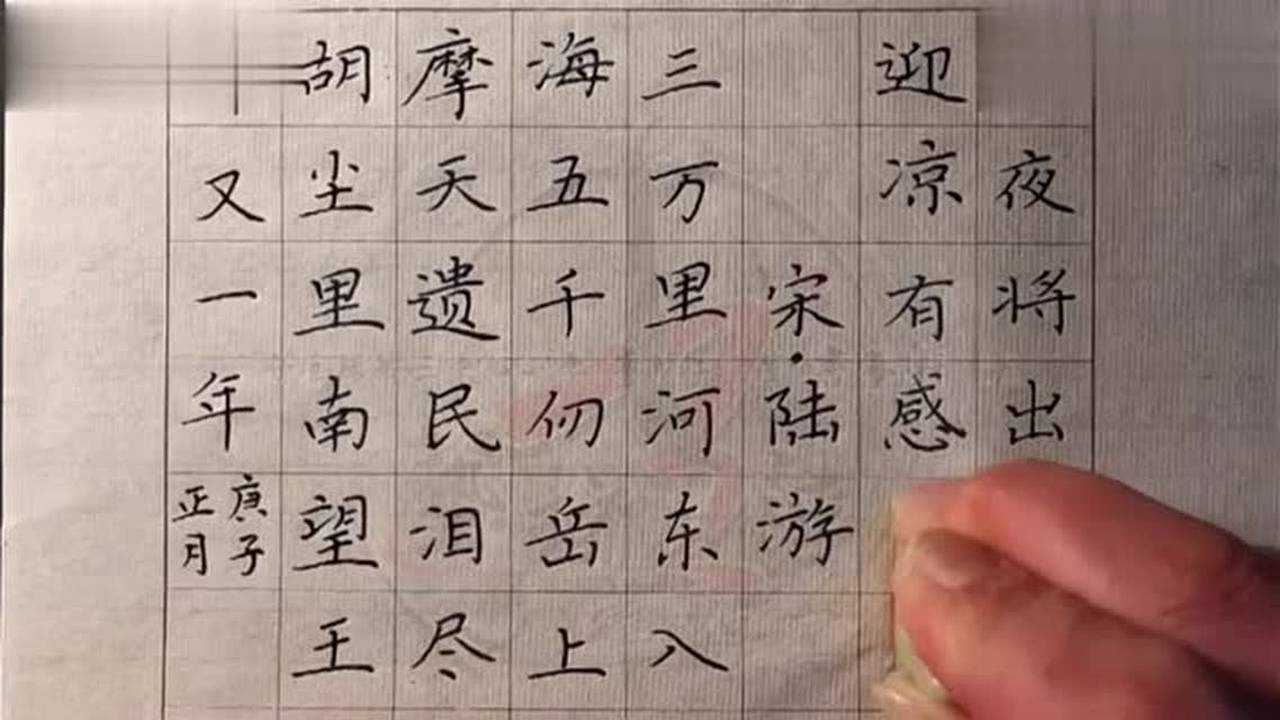 夜将出
迎凉有感
宋·陆游
三万里河东入
海五千仞岳上
摩天遗民泪尽
胡尘里南望王
又一年
庚子
正月